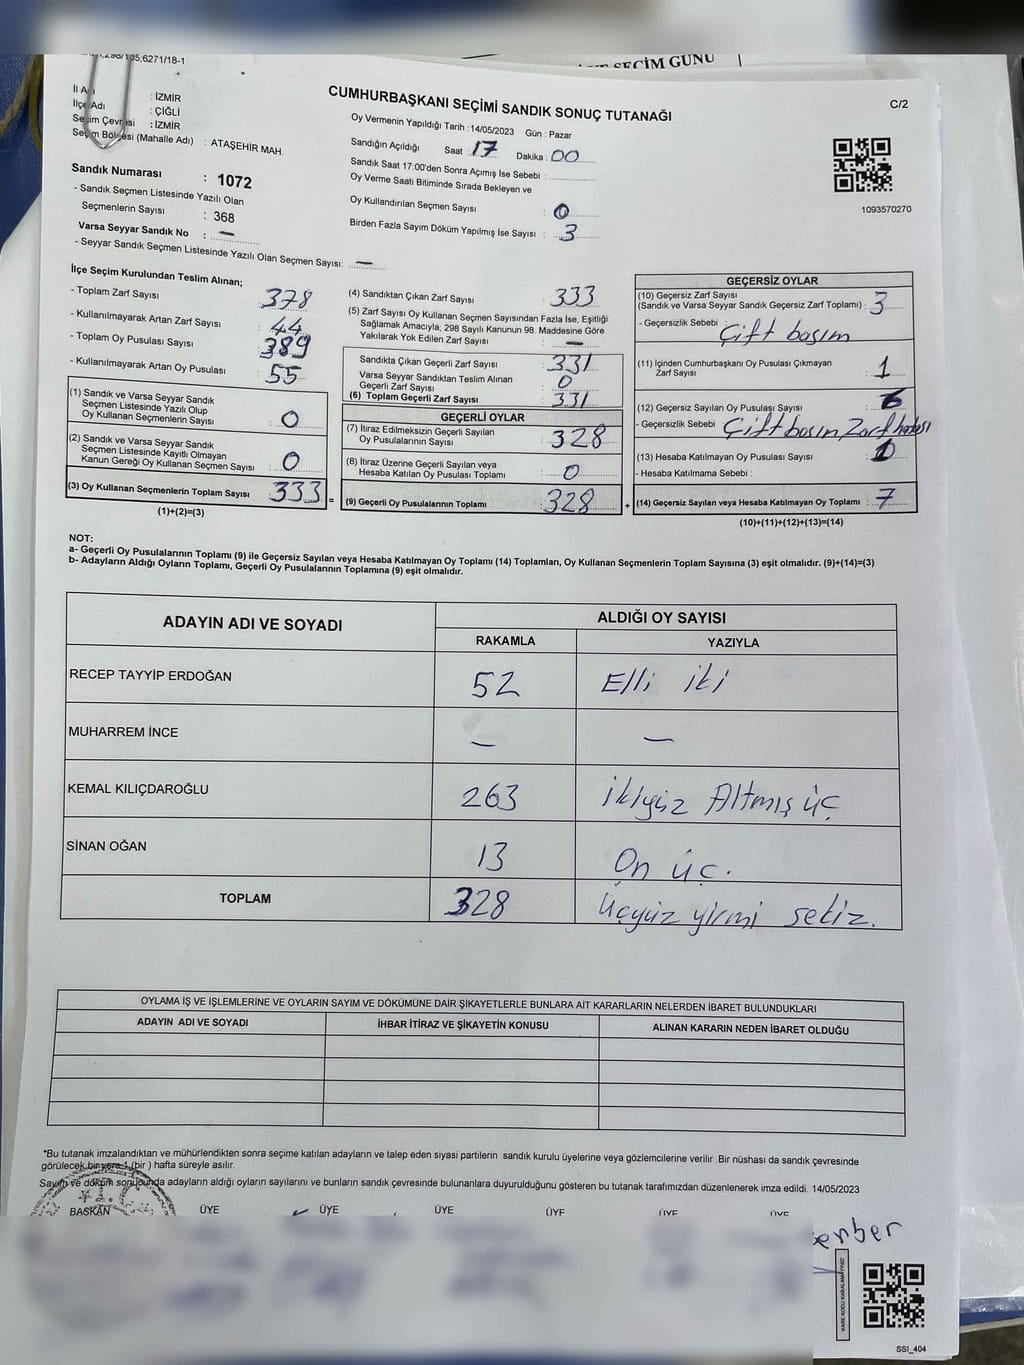 298/135,6271/18-1
SEÇİM GÜNÜ
CUMHURBAŞKANI SEÇİMİ SANDIK SONUÇ TUTANAĞI
C/2
İl Adı : İZMİR
İlçe Adı : ÇİĞLİ
Seçim Çevresi : İZMİR
Seçim Bölgesi (Mahalle Adı) : ATAŞEHİR MAH.
Sandık Numarası : 1072
- Sandık Seçmen Listesinde Yazılı Olan
Seçmenlerin Sayısı : 368
Varsa Seyyar Sandık No : —
- Seyyar Sandık Seçmen Listesinde Yazılı Olan Seçmen Sayısı: —
Oy Vermenin Yapıldığı Tarih : 14/05/2023 Gün : Pazar
Sandığın Açıldığı Saat : 17 Dakika : 00
Sandık Saat 17:00'den Sonra Açımış İse Sebebi :
Oy Verme Saati Bitiminde Sırada Bekleyen ve
Oy Kullandırılan Seçmen Sayısı : 0
Birden Fazla Sayım Döküm Yapılmış İse Sayısı : 3
1093570270
İlçe Seçim Kurulundan Teslim Alınan;
- Toplam Zarf Sayısı 378
- Kullanılmayarak Artan Zarf Sayısı 44
- Toplam Oy Pusulası Sayısı 389
- Kullanılmayarak Artan Oy Pusulası 55
(1) Sandık ve Varsa Seyyar Sandık
Seçmen Listesinde Yazılı Olup
Oy Kullanan Seçmenlerin Sayısı : 0
(2) Sandık ve Varsa Seyyar Sandık
Seçmen Listesinde Kayıtlı Olmayan
Kanun Gereği Oy Kullanan Seçmen Sayısı : 0
(3) Oy Kullanan Seçmenlerin Toplam Sayısı 333 =
(1)+(2)=(3)
(4) Sandıktan Çıkan Zarf Sayısı : 333
(5) Zarf Sayısı Oy Kullanan Seçmen Sayısından Fazla İse, Eşitliği
Sağlamak Amacıyla; 298 Sayılı Kanunun 98. Maddesine Göre
Yakılarak Yok Edilen Zarf Sayısı : —
Sandıkta Çıkan Geçerli Zarf Sayısı : 331
Varsa Seyyar Sandıktan Teslim Alınan
Geçerli Zarf Sayısı : 0
(6) Toplam Geçerli Zarf Sayısı : 331
GEÇERLİ OYLAR
(7) İtiraz Edilmeksizin Geçerli Sayılan
Oy Pusulalarının Sayısı : 328
(8) İtiraz Üzerine Geçerli Sayılan veya
Hesaba Katılan Oy Pusulası Toplamı : 0
(9) Geçerli Oy Pusulalarının Toplamı : 328 +
GEÇERSİZ OYLAR
(10) Geçersiz Zarf Sayısı
(Sandık ve Varsa Seyyar Sandık Geçersiz Zarf Toplamı) : 3
- Geçersizlik Sebebi : Çift basım
(11) İçinden Cumhurbaşkanı Oy Pusulası Çıkmayan
Zarf Sayısı : 1
(12) Geçersiz Sayılan Oy Pusulası Sayısı :
- Geçersizlik Sebebi : Çift basım Zarf hatası
(13) Hesaba Katılmayan Oy Pusulası Sayısı :
- Hesaba Katılmama Sebebi :
(14) Geçersiz Sayılan veya Hesaba Katılmayan Oy Toplamı : 7
(10)+(11)+(12)+(13)=(14)
NOT:
a- Geçerli Oy Pusulalarının Toplamı (9) ile Geçersiz Sayılan veya Hesaba Katılmayan Oy Toplamı (14) Toplamları, Oy Kullanan Seçmenlerin Toplam Sayısına (3) eşit olmalıdır. (9)+(14)=(3)
b- Adayların Aldığı Oyların Toplamı, Geçerli Oy Pusulalarının Toplamına (9) eşit olmalıdır.
ADAYIN ADI VE SOYADI
ALDIĞI OY SAYISI
RAKAMLA YAZIYLA
RECEP TAYYİP ERDOĞAN 52 Elli iki
MUHARREM İNCE — —
KEMAL KILIÇDAROĞLU 263 ikiyüz Altmış üç
SİNAN OĞAN 13 On üç.
TOPLAM 328 Üçyüz yirmi sekiz.
OYLAMA İŞ VE İŞLEMLERİNE VE OYLARIN SAYIM VE DÖKÜMÜNE DAİR ŞİKAYETLERLE BUNLARA AİT KARARLARIN NELERDEN İBARET BULUNDUKLARI
ADAYIN ADI VE SOYADI İHBAR İTİRAZ VE ŞİKAYETİN KONUSU ALINAN KARARIN NEDEN İBARET OLDUĞU
*Bu tutanak imzalandıktan ve mühürlendikten sonra seçime katılan adayların ve talep eden siyasi partilerin sandık kurulu üyelerine veya gözlemcilerine verilir .Bir nüshası da sandık çevresinde
görülecek bir yere 1 (bir ) hafta süreyle asılır.
Sayım ve döküm sonucunda adayların aldığı oyların sayılarını ve bunların sandık çevresinde bulunanlara duyurulduğunu gösteren bu tutanak tarafımızdan düzenlenerek imza edildi. 14/05/2023
T.C.
BAŞKAN ÜYE ÜYE ÜYE ÜYE ÜYE ÜYE
SSI_404